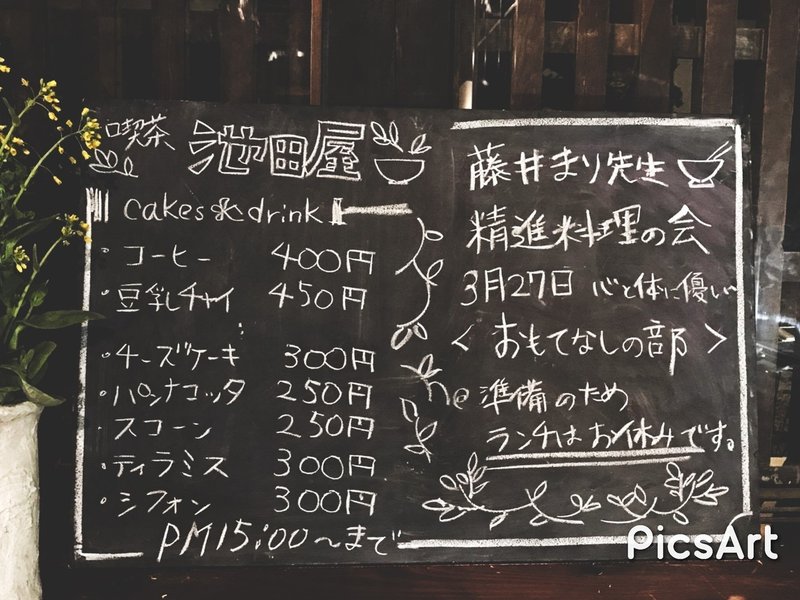 喫茶 池田屋
cakes & drink
・コーヒー 400円
・豆乳チャイ 450円
・チーズケーキ 300円
・パンナコッタ 250円
・スコーン 250円
・ティラミス 300円
・シフォン 300円
PM15:00〜まで
藤井まり先生
精進料理の会
3月27日 心と体に優しい
<おもてなしの部>
準備のため
ランチはお休みです。
PicsArt